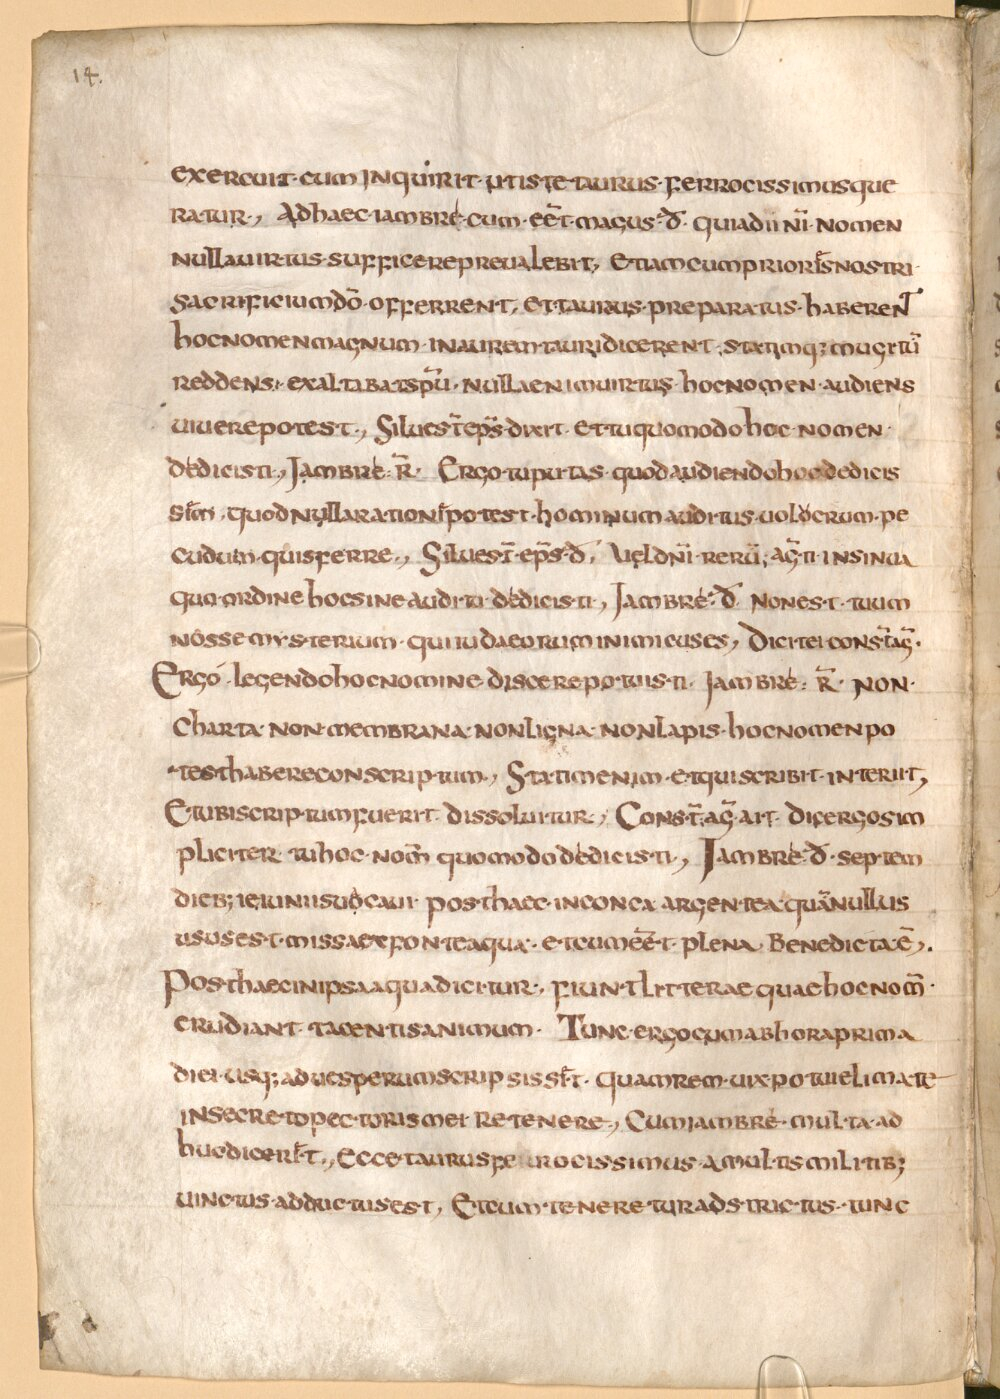 14.
exercuit · cum inquirit · ut iste taurus · ferrocissimus que
ratur ·, Adhaec · iambre · cum · eēt · magus · : đ · quia dii nr̄i · nomen
nulla uirtus · suffice re preualebit, Etiam cum prior͞s nostri ·
sacrificium dō · offerrent, et taurus · preparatus · haberent
hoc nomen magnum · in aurem tauri dicerent · statimq; mugitū
reddens, · exaltabat sp̄u · nulla enim uirtus · hoc nomen · audiens
uiuere potest ·, Siluest̄ ep̄s · dixit · et tu quomodo hoc · nomen ·
dedicisti ·, Jambre : r̄ · Ergo tu putas · quod audiendo hoc dedicis
s͞em · quod nulla ration͞ potest · hominum auditus · uolocrum · pe
cudum · quis ferre ·, Siluest̄ · ep̄s · đ · Uel dn̄i · rerū ; aḡ · ti · insinua
quo · ordine hoc sine auditu dedicisti, Jambre : đ · non est · tuum
nosse mysterium · qui iudaeorum inimicus es, Dicit ei const̄ aḡ ·
Ergo · legendo hoc nomine · discere potuisti · Jambre : r̄ · non ·
charta · non · membrana · non ligna · non lapis · hoc nomen po
test habere conscriptum ·, Statim enim · et qui scribit · interiit,
Et ubi scriptum fuerit · dissoluitur ·, Const̄ ; aḡ · ait · dic ergo sim
pliciter · tu hoc · nom̄ quomodo dedicisti ·, Jambre : đ · septem
dieb; ieiuniis uocaui · post haec · in conca · argentea · quā nullus
usus est · missa ex fonte aqua · et cum eēt · plena · Benedicta ē, ·
Post haec in ipsa aqua dicitur ·, fiunt litterae quae hoc nom̄ ·
erudiant · tacentis animum · Tunc · ergo cum ab hora prima
diei · usq; ad uesperum scripsiss͞t · quam rem · uix potui elimate
in secreto pectoris mei · retenere ·, Cum iambre · multa · ad
huc dicer͞t ·, ecce taurus fe rocissimus · a multis militib;
uinctus · adductus est, Et cum · teneretur adstrictus · tunc